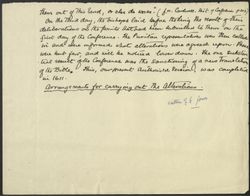 them out of this land, or else do worse" (
On the third day, the Bishops laid before the King the result of their
deliberations on the points that had been submitted to them on the
first day of the Conference. The Puritan representatives were then called
in and were informed what alterations were agreed upon. These
were but few, and will be noticed lower down. The one substan-
tial result of the Conference was the sanctioning of a new Translation
of the Bible. This, our present Authorised Version, was completed
in 1611.
Arrangements for carrying out the Alterations.